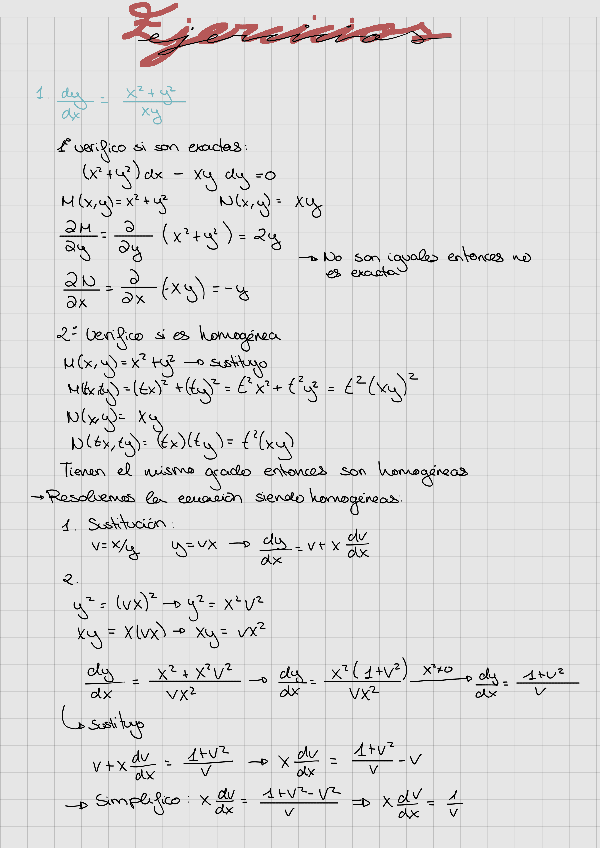 Ejercicios
1. dy/dx = x² + y² / xy
1º verifico si son exactas:
(x²+y²)dx - xy dy = 0
M(x,y) = x² + y² N(x,y) = xy
∂M/∂y = ∂/∂y (x²+y²) = 2y
→ No son iguales entonces no
es exacta
∂N/∂x = ∂/∂x (-xy) = -y
2º verifico si es homogénea
M(x,y) = x² + y² → sustituyo
M(tx,ty) = (tx)² + (ty)² = t²x² + t²y² = t²(xy)²
N(x,y) = xy
N(tx,ty) = (tx)(ty) = t²(xy)
Tienen el mismo grado entonces son homogéneas
→ Resolvemos la ecuación siendo homogéneas.
1. Sustitución:
v = x/y y = vx → dy/dx = v + x dv/dx
2.
y² = (vx)² → y² = x²v²
xy = x(vx) → xy = vx²
dy/dx = x² + x²v² / vx² → dy/dx = x²(1+v²) / vx² x²≠0 → dy/dx = 1+v² / v
↳ sustituyo
v + x dv/dx = 1+v² / v → x dv/dx = 1+v² / v - v
→ Simplifico: x dv/dx = 1+v²-v² / v ⇒ x dv/dx = 1/v